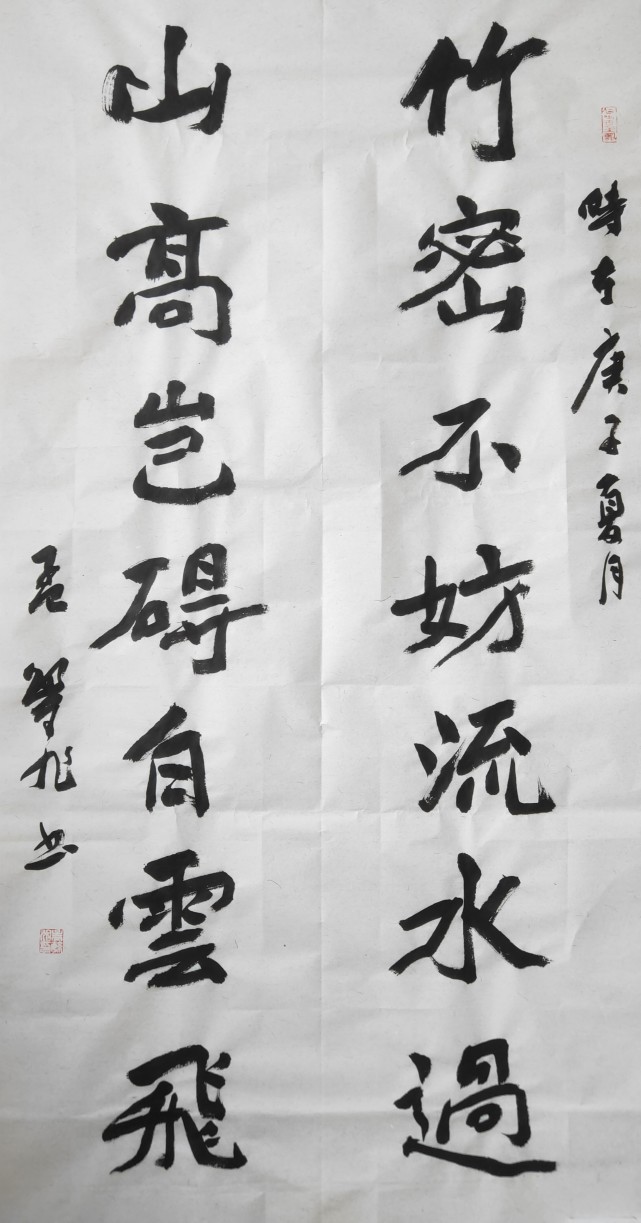 時在庚子夏月
竹密不妨流水過
山高岂碍白雲飛
孟 書